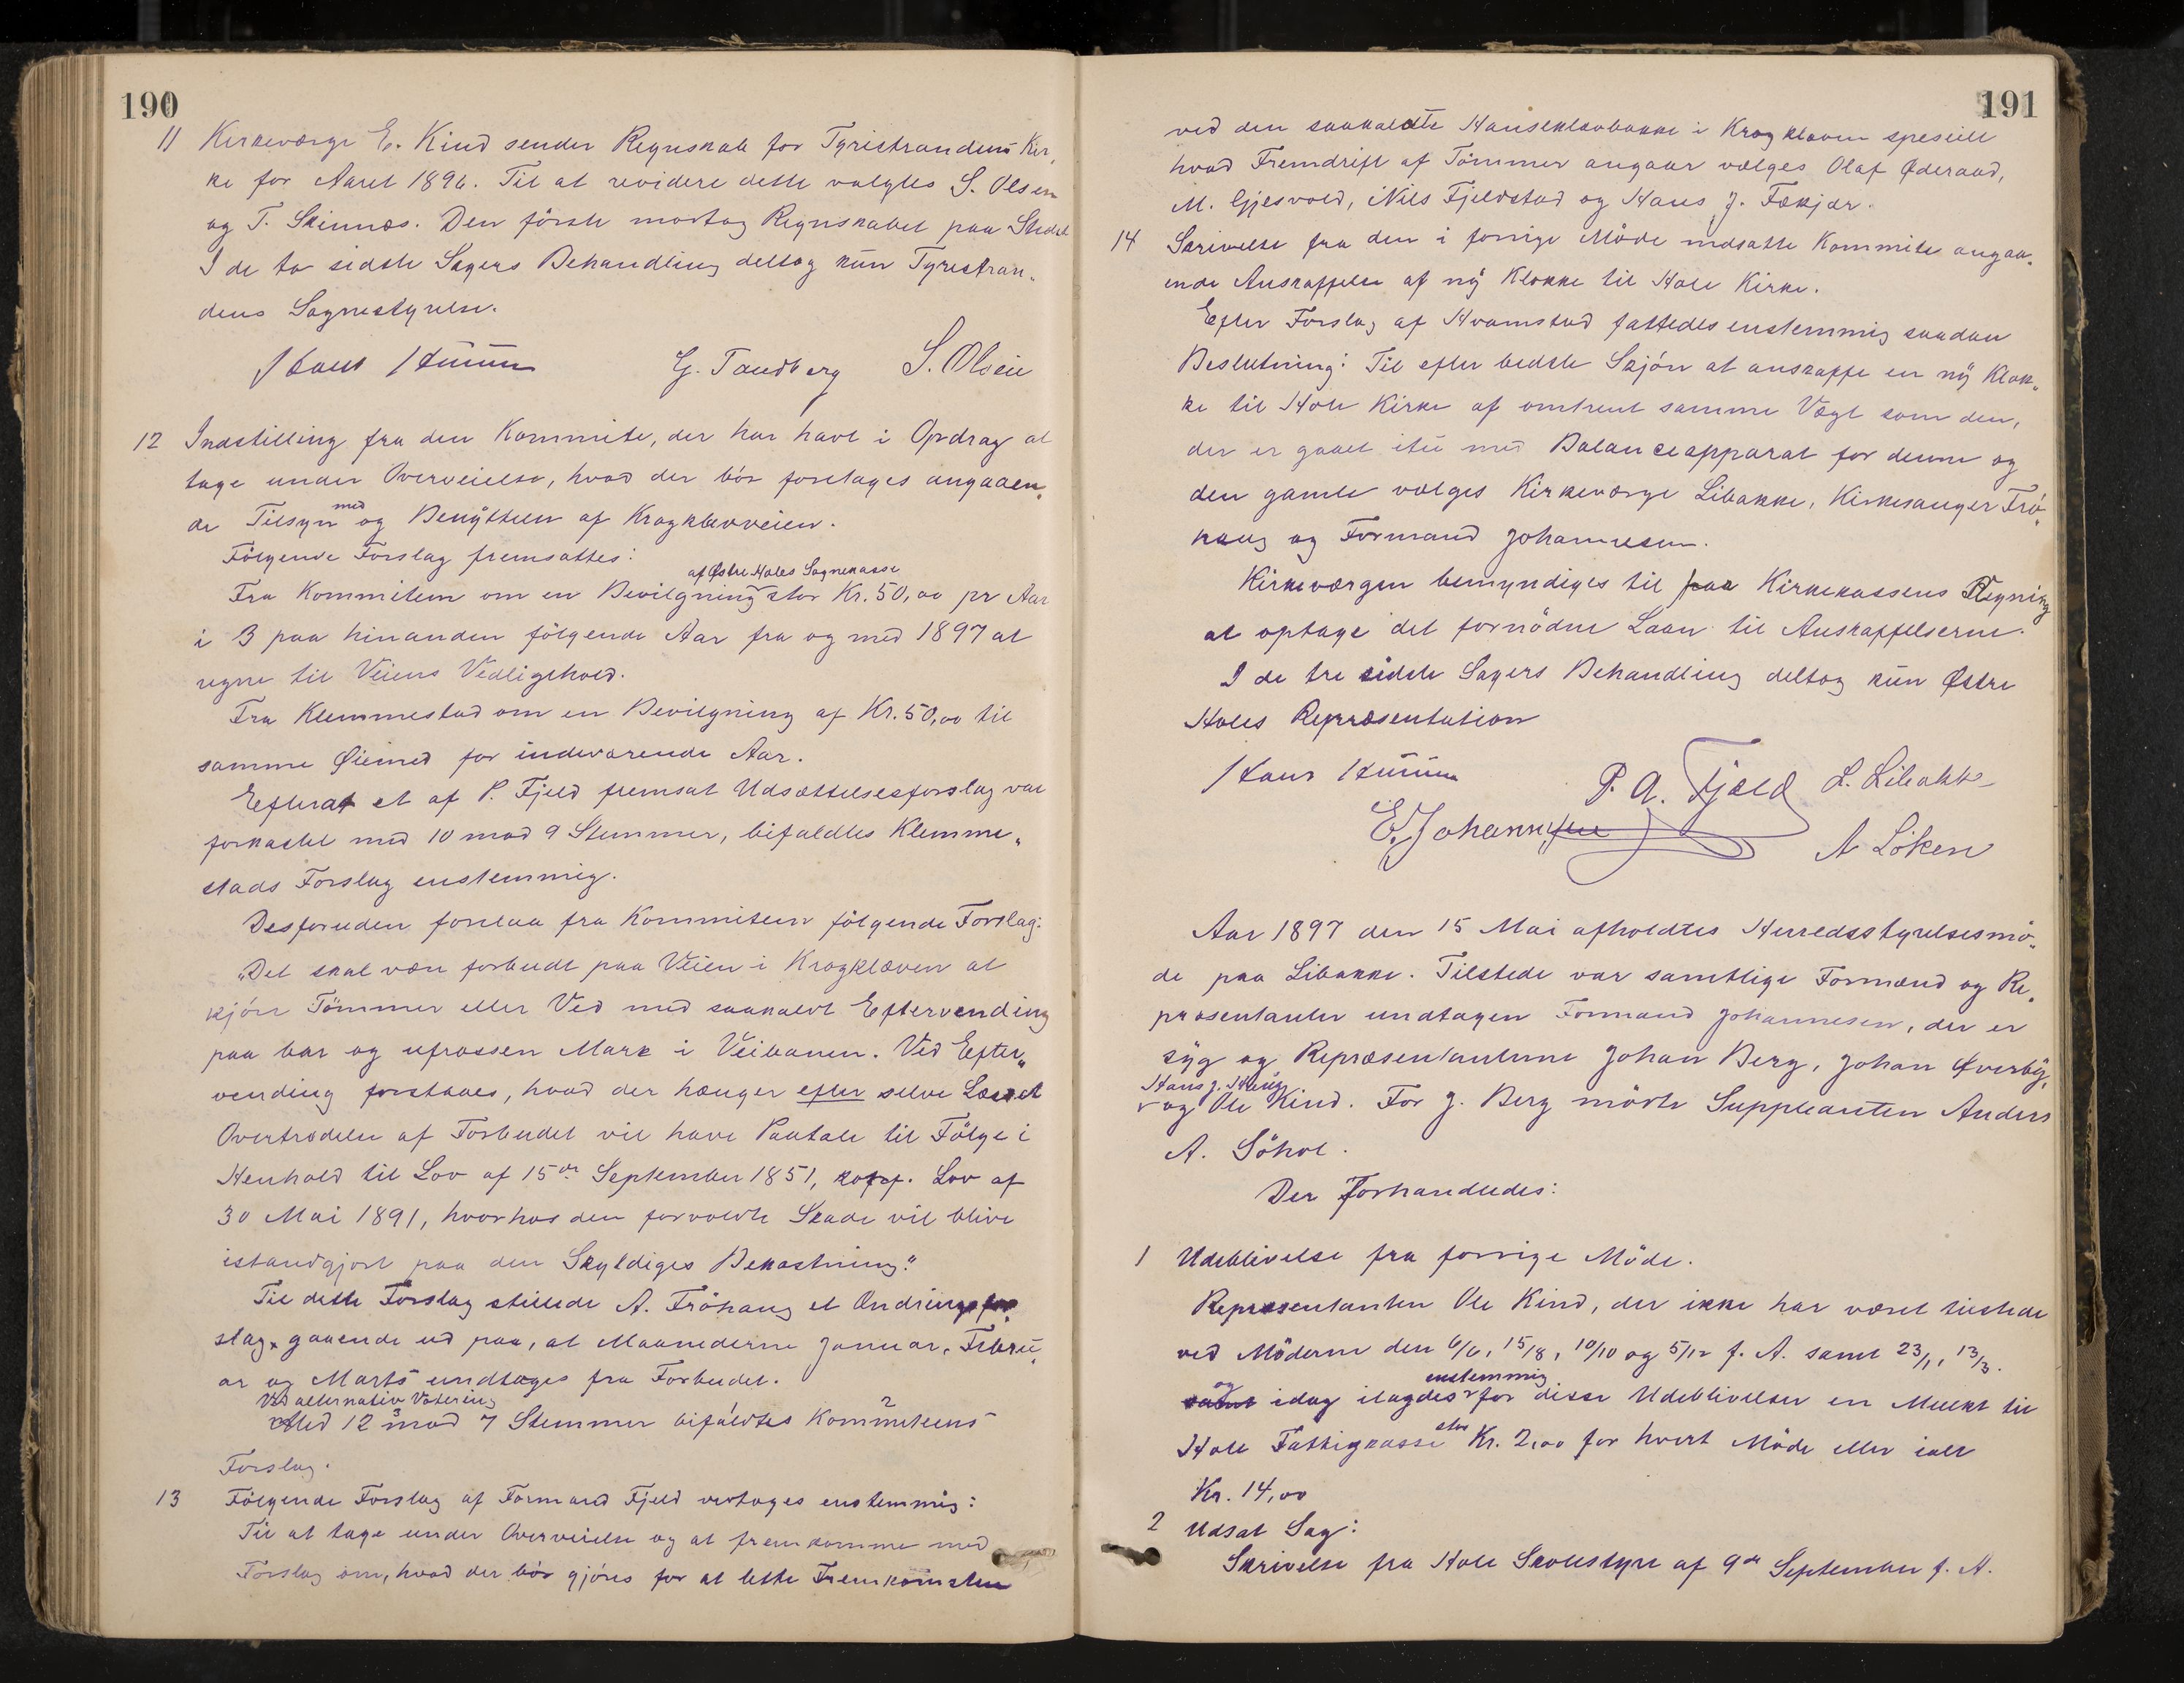 190
11 Kirkeværge E. Kind sender Regnskab for Tyristrandens Kir„
ke for Aaret 1896. Til at revidere dette valgtes S. Olsen
og T. Skinnæs. Den første modtog Regnskabet paa Stedet
I de to sidste Sagers Behandling deltog kun Tyristran„
dens Sognestyrelse.
G. Tandberg S. Olsen
12 Indstilling fra den Kommite, der har havt i Opdrag at
tage under Overveielse, hvad der bør foretages angaaen„
de Tilsyn med og Benyttelse af Krogklevveien.
Følgende Forslag fremsattes:
af Østre Holes Sognekasse
Fra Kommiteen om en Bevilgning stor Kr. 50,00 pr Aar
i 3 paa hinanden følgende Aar fra og med 1897 at
regne til Veiens Vedligehold.
Fra Klemmestad om en Bevilgning af Kr. 50,00 til
samme Øiemed for indeværende Aar.
Efterat et af P. Fjeld fremsat Udsættelsesforslag var
forkastet med 10 mod 9 Stemmer, bifaldtes Klemme„
stads Forslag enstemmig.
Desforuden forelaa fra Kommiteen følgende Forslag:
„Det skal være forbudt paa Veien i Krogkleven at
kjøre Tømmer eller Ved med saakaldt Eftervending
paa bar og ufrossen Mark i Veibanen. Ved Efter„
vending forstaaes, hvad der hænger efter selve Læsset
Overtrædelse af Forbudet vil have Paatale til Følge i
Henhold til Lov af 15de September 1851, Lov af
30 Mai 1891, hvorhos den forvoldte Skade vil blive
istandgjort paa den Skyldiges Bekostning."
Til dette Forslag stillede A. Frøhaug et Ændringsfor„
slag, gaaende ud paa, at Maanederne Januar, Febru„
ar og Marts undtages fra Forbudet.
Ved alternativ Votering
Med 12 mod 7 Stemmer bifaldtes Kommiteens
Forslag.
13 Følgende Forslag af Formand Fjeld vedtoges enstemmig:
Til at tage under Overveielse og at fremkomme med
Forslag om, hvad der bør gjøres for at lette Fremkomsten
191
ved den saakaldte Hanseklevbakke i Krogkleven specielt
hvad Fremdrift af Tømmer angaar vælges Olaf Øderaad,
M. Gjesvold, Nils Fjeldstad og Hans J. Fækjær.
14 Skrivelse fra den i forrige Møde nedsatte Kommite angaa„
ende Anskaffelse af ny Klokke til Hole Kirke.
Efter Forslag af Hvamstad fattedes enstemmig saadan
Beslutning: Til efter bedste Skjøn at anskaffe en ny Klok„
ke til Hole Kirke af omtrent samme Vægt som den,
der er gaaet itu med Balanceapparat for denne og
den gamle vælges Kirkeværge Libakke, Kirkesanger Frø„
haug og Formand Johannesen.
Kirkeværgen bemyndiges til paa Kirkekassens Regning
at optage det fornødne Laan til Anskaffelserne.
I de tre sidste Sagers Behandling deltog kun Østre
Holes Repræsentation
P. A. Fjeld L. Libakke
E. Johannesen
A Løken
Aar 1897 den 15 Mai afholdtes Herredsstyrelsesmø„
de paa Libakke. Tilstede var samtlige Formænd og Re„
præsentanter undtagen Formand Johannesen, der er
syg og Repræsentanterne Johan Berg, Johan Øverby,
Hans J. Haug
og Ole Kind. For J. Berg mødte Suppleanten Anders
A. Søhol.
Der Forhandledes:
1 Udeblivelse fra forrige Møde.
Repræsentanten Ole Kind, der ikke har været tilstede
ved Møderne den 6/6, 15/8, 10/10 og 5/12 f. A. samt 23/1, 13/3.
og enstemmig
idag ilagdes for disse Udeblivelser en Mulkt til
Hole Fattigkasse stor Kr. 2,00 for hvert Møde eller ialt
Kr. 14,00
2 Udsat Sag:
Skrivelse fra Hole Skolestyre af 9de September f. A.